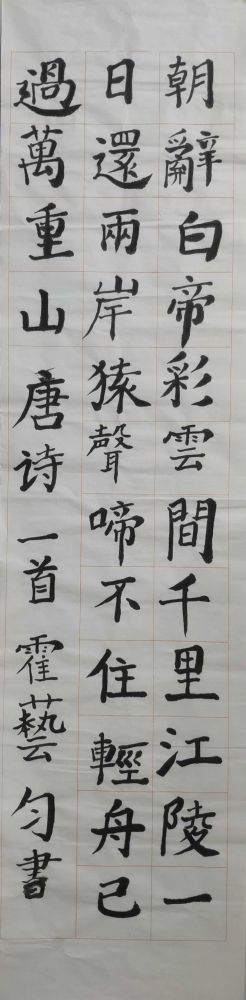 朝辭白帝彩雲間千里江陵一
日還兩岸猿聲啼不住輕舟已
過萬重山唐诗一首霍藝勻書